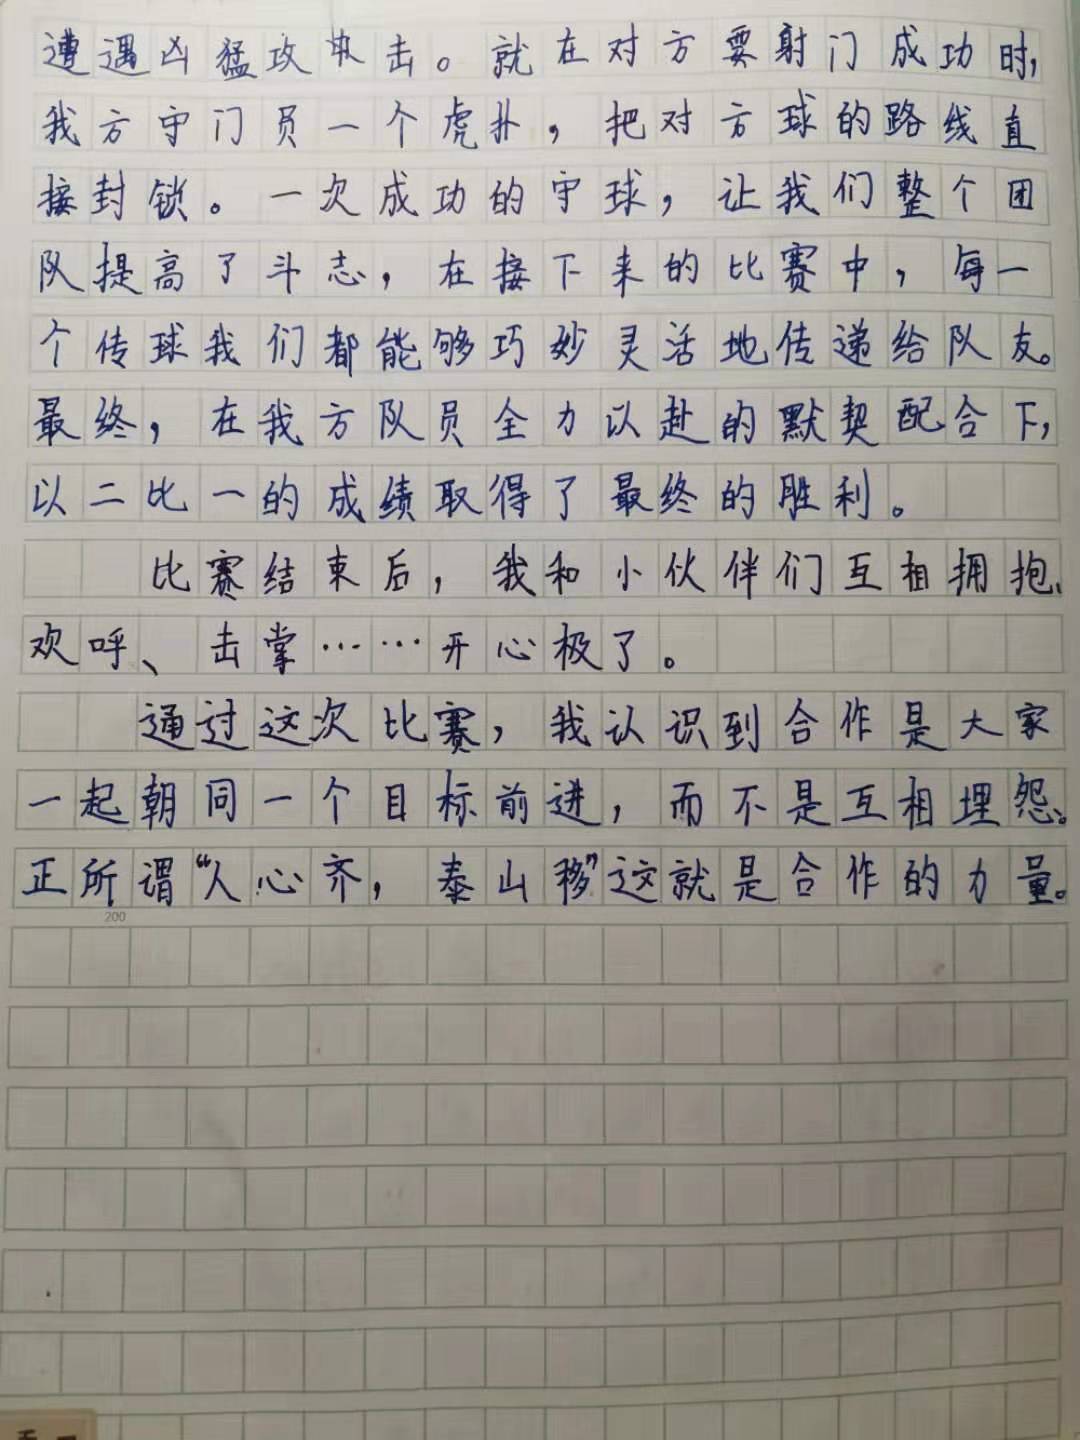 遭遇凶猛攻击。就在对方要射门成功时,
我方守门员一个虎扑，把对方球的路线直
接封锁。一次成功的守球，让我们整个团
队提高了斗志，在接下来的比赛中，每一
个传球我们都能够巧妙灵活地传递给队友。
最终，在我方队员全力以赴的默契配合下,
以二比一的成绩取得了最终的胜利。
比赛结束后，我和小伙伴们互相拥抱、
欢呼、击掌……开心极了。
通过这次比赛，我认识到合作是大家
一起朝同一个目标前进，而不是互相埋怨。
正所谓“人心齐，泰山移”这就是合作的力量。
200